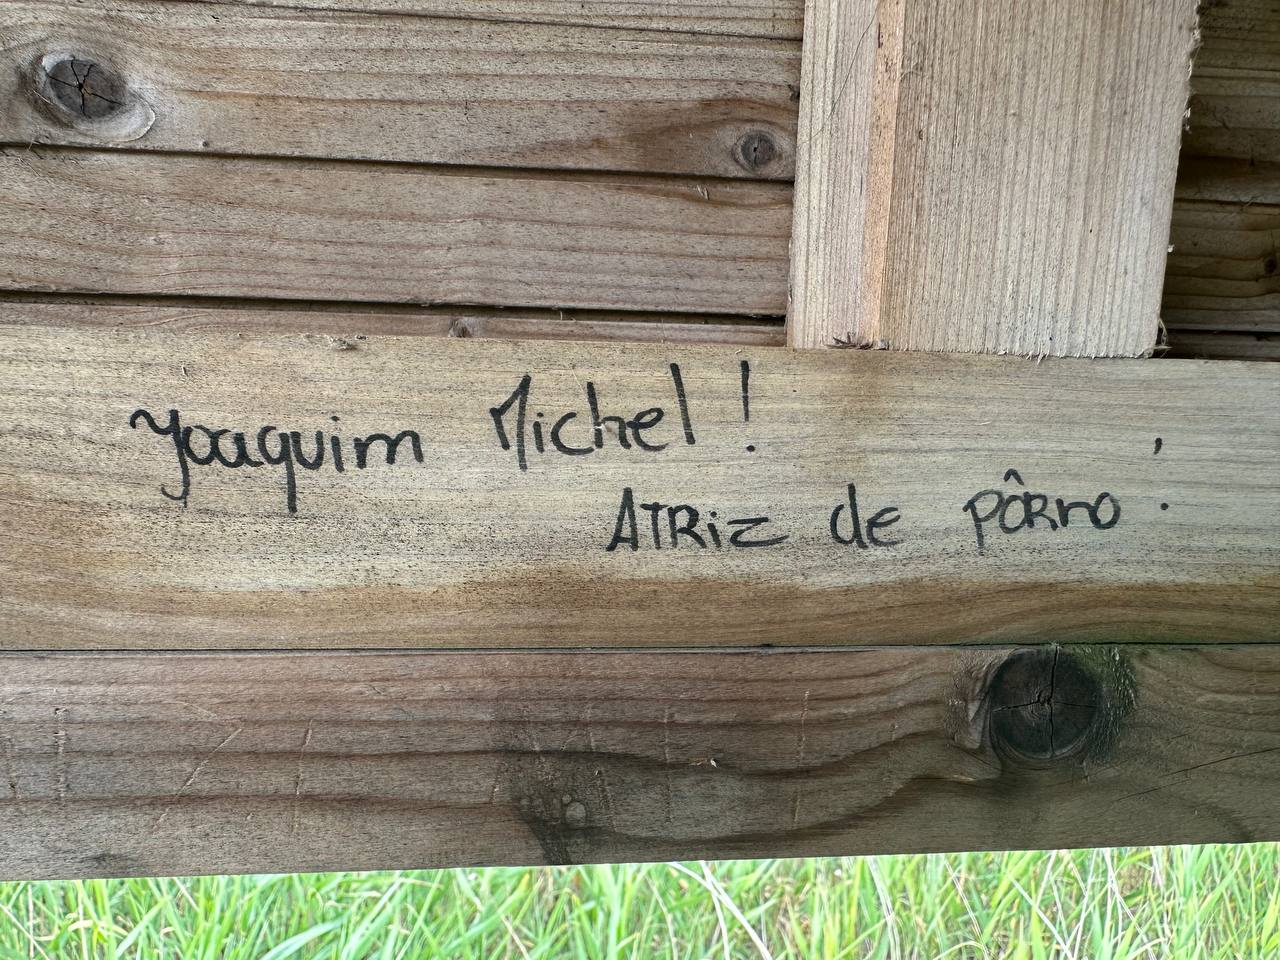 Joaquim Michel!
ATRiz de pôRno!